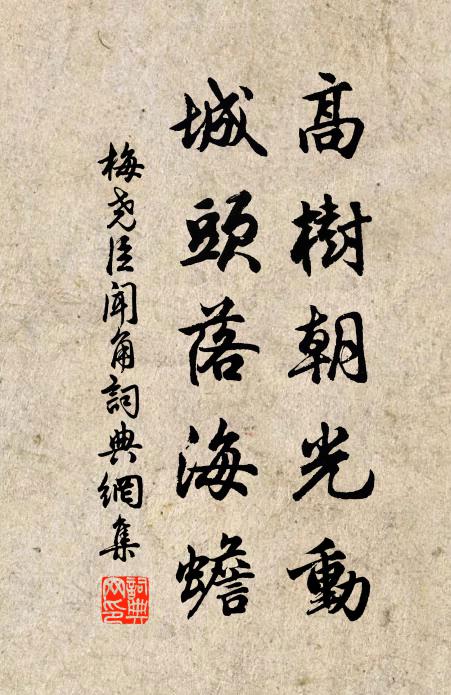 高樹朝光動
城頭落海蟾
梅堯臣聞角詞典網集
詞典網印